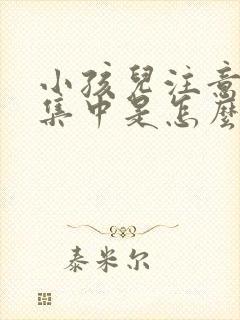 小孩兒注意
集中是怎麼
泰米尔